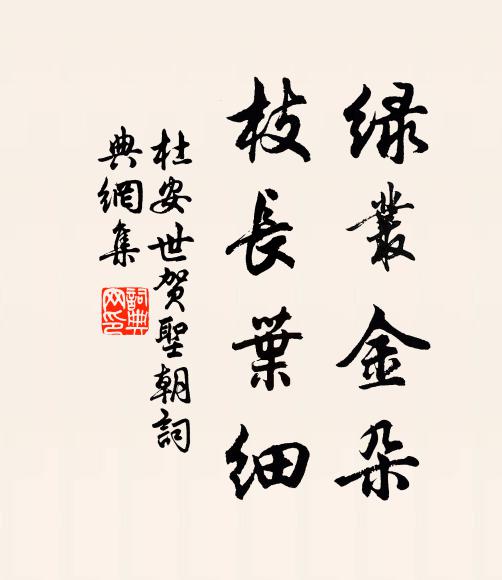 绿叢金朵
枝長葉细
杜安世贺聖朝詞
典網集
詞典
网印